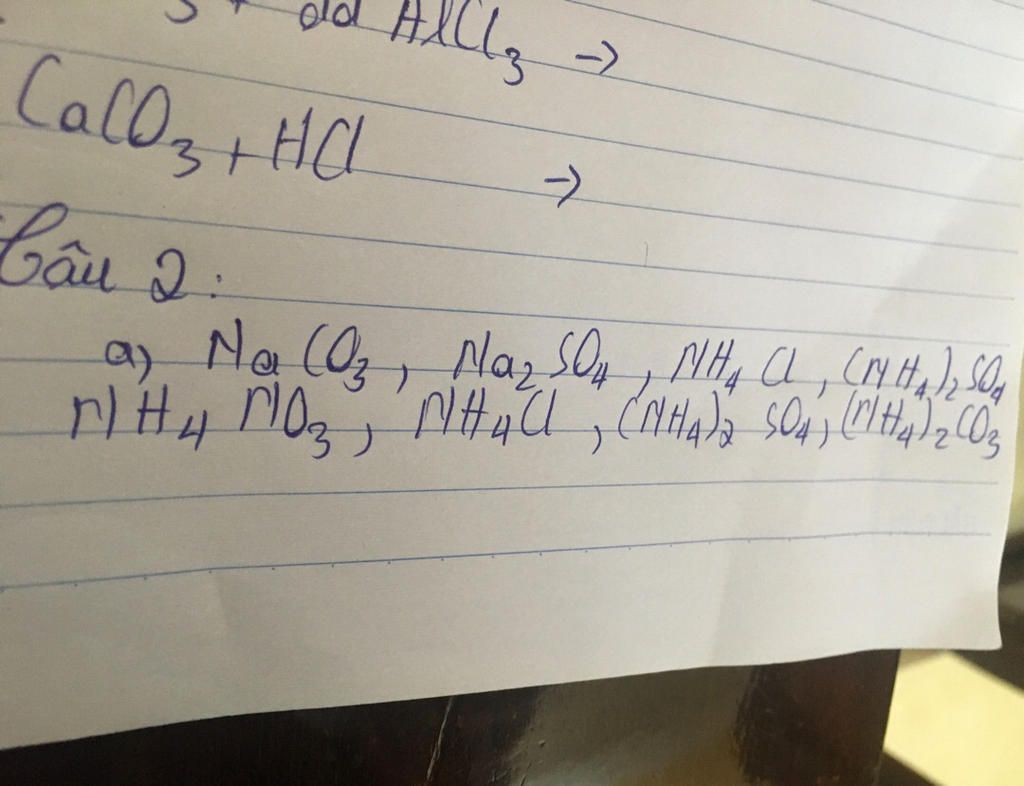 3 + dd AlCl3 →
CaCO3 + HCl →
Câu 2:
a, NaCO3, Na2SO4, NH4Cl, (NH4)2SO4
NH4NO3, NH4Cl, (NH4)2SO4, (NH4)2CO3